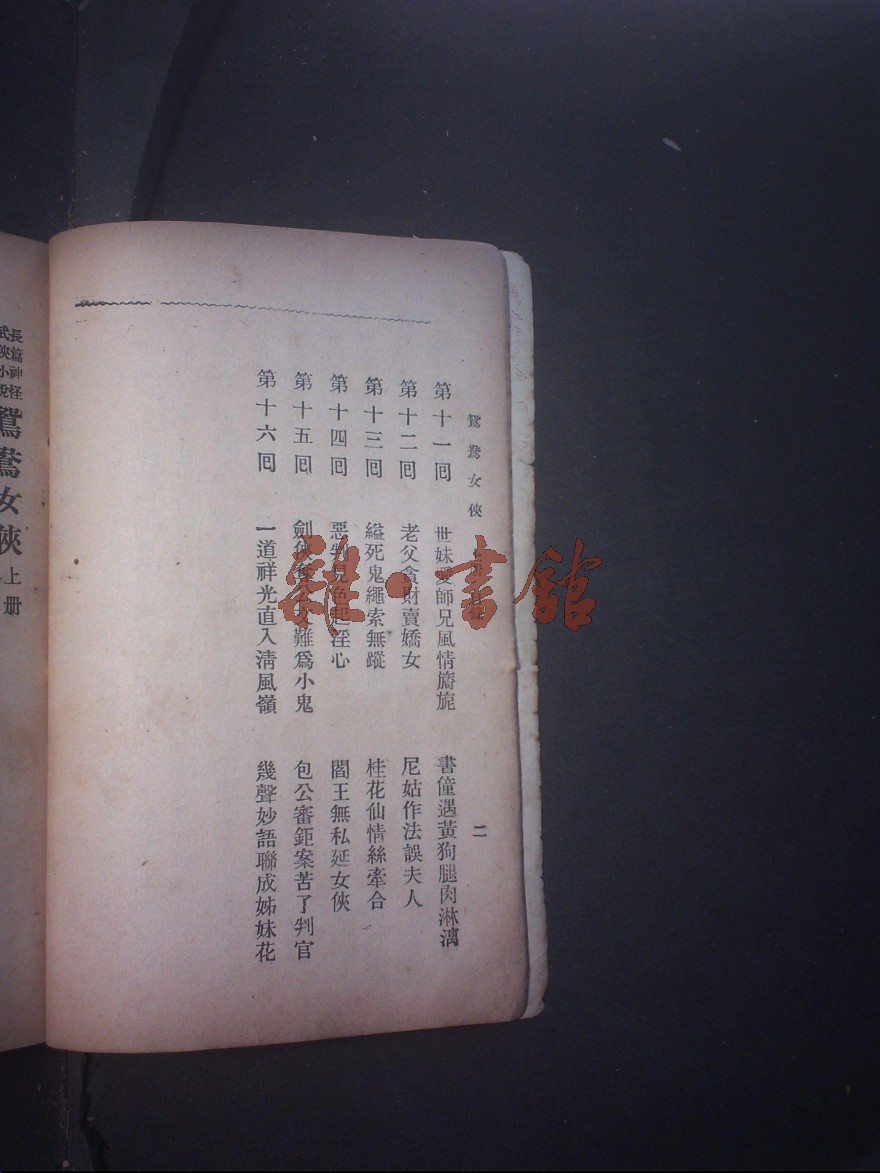 鴛鴦女俠 二
第十一回 世妹愛師兄風情旖旎 書僮遇黃狗腿肉淋漓
第十二回 老父貪財賣嬌女 尼姑作法誤夫人
第十三回 縊死鬼繩索無蹤 桂花仙情絲牽合
第十四回 惡判見色起淫心 閻王無私延女俠
第十五回 劍俠 公文難爲小鬼 包公審鉅案苦了判官
第十六回 一道祥光直入清風嶺 幾聲妙語聯成姊妹花
長篇神怪
武俠小說
鴛鴦女俠 上册
雜·書館